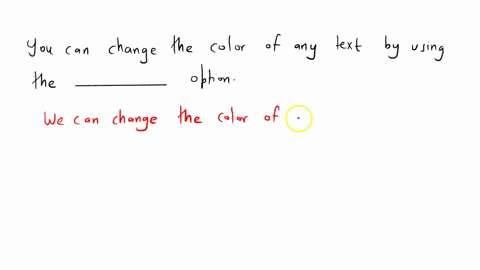 You can change the color of any text by using
the __________ option.
We can change the color of